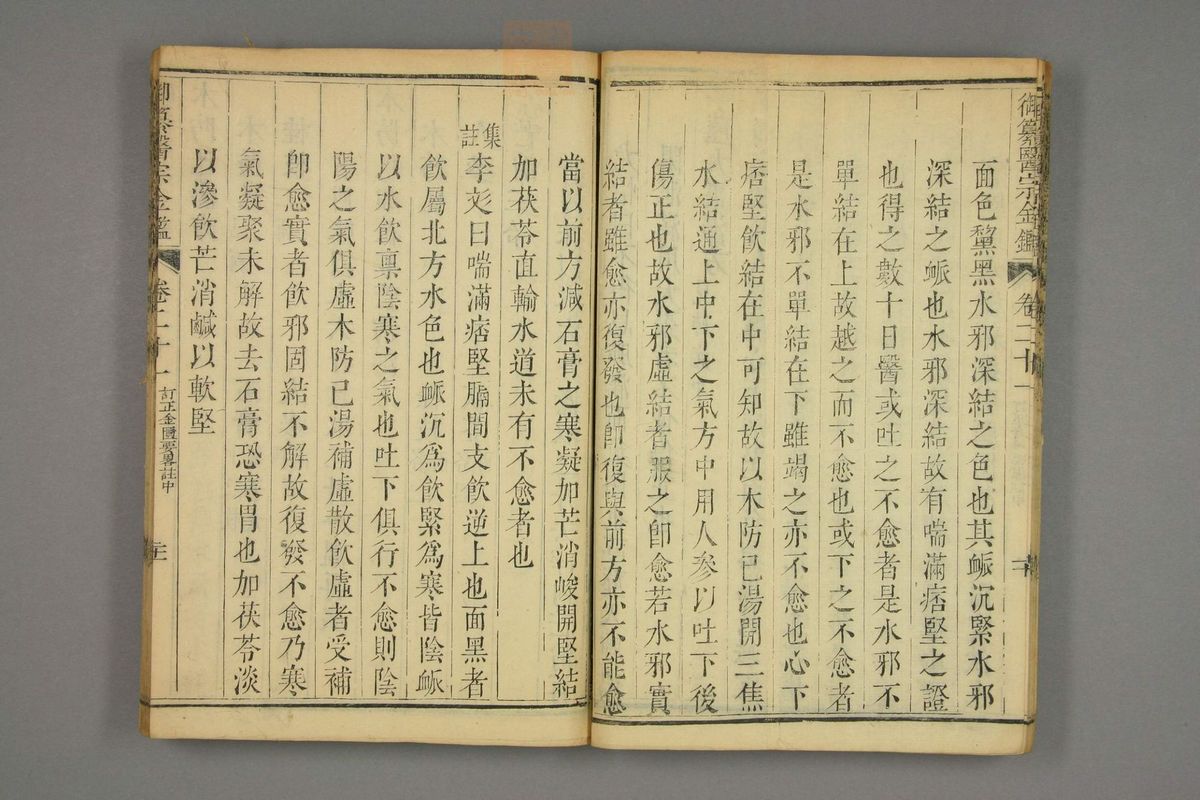 御纂醫宗金鑑 卷二十一
面色黧黑水邪深結之色也其脈沉緊水邪
深結之脈也水邪深結故有喘滿痞堅之證
也得之數十日醫或吐之不愈者是水邪不
單結在上故越之而不愈也或下之不愈者
是水邪不單結在下雖竭之亦不愈也心下
痞堅飲結在中可知故以木防已湯開三焦
水結通上中下之氣方中用人參以吐下後
傷正也故水邪虛結者服之卽愈若水邪實
結者雖愈亦復發也卽復與前方亦不能愈
當以前方減石膏之寒凝加芒消峻開堅結
加茯苓直輸水道未有不愈者也
集註李彣曰喘滿痞堅膈間支飲逆上也面黑者
飲屬北方水色也脈沉爲飲緊爲寒皆陰脈
以水飲稟陰寒之氣也吐下俱行不愈則陰
陽之氣俱虛木防已湯補虛散飲虛者受補
卽愈實者飲邪固結不解故復發不愈乃寒
氣凝聚未解故去石膏恐寒胃也加茯苓淡
以滲飲芒消鹹以軟堅
御纂醫宗金鑑 卷二十一 訂正金匱要畧註中